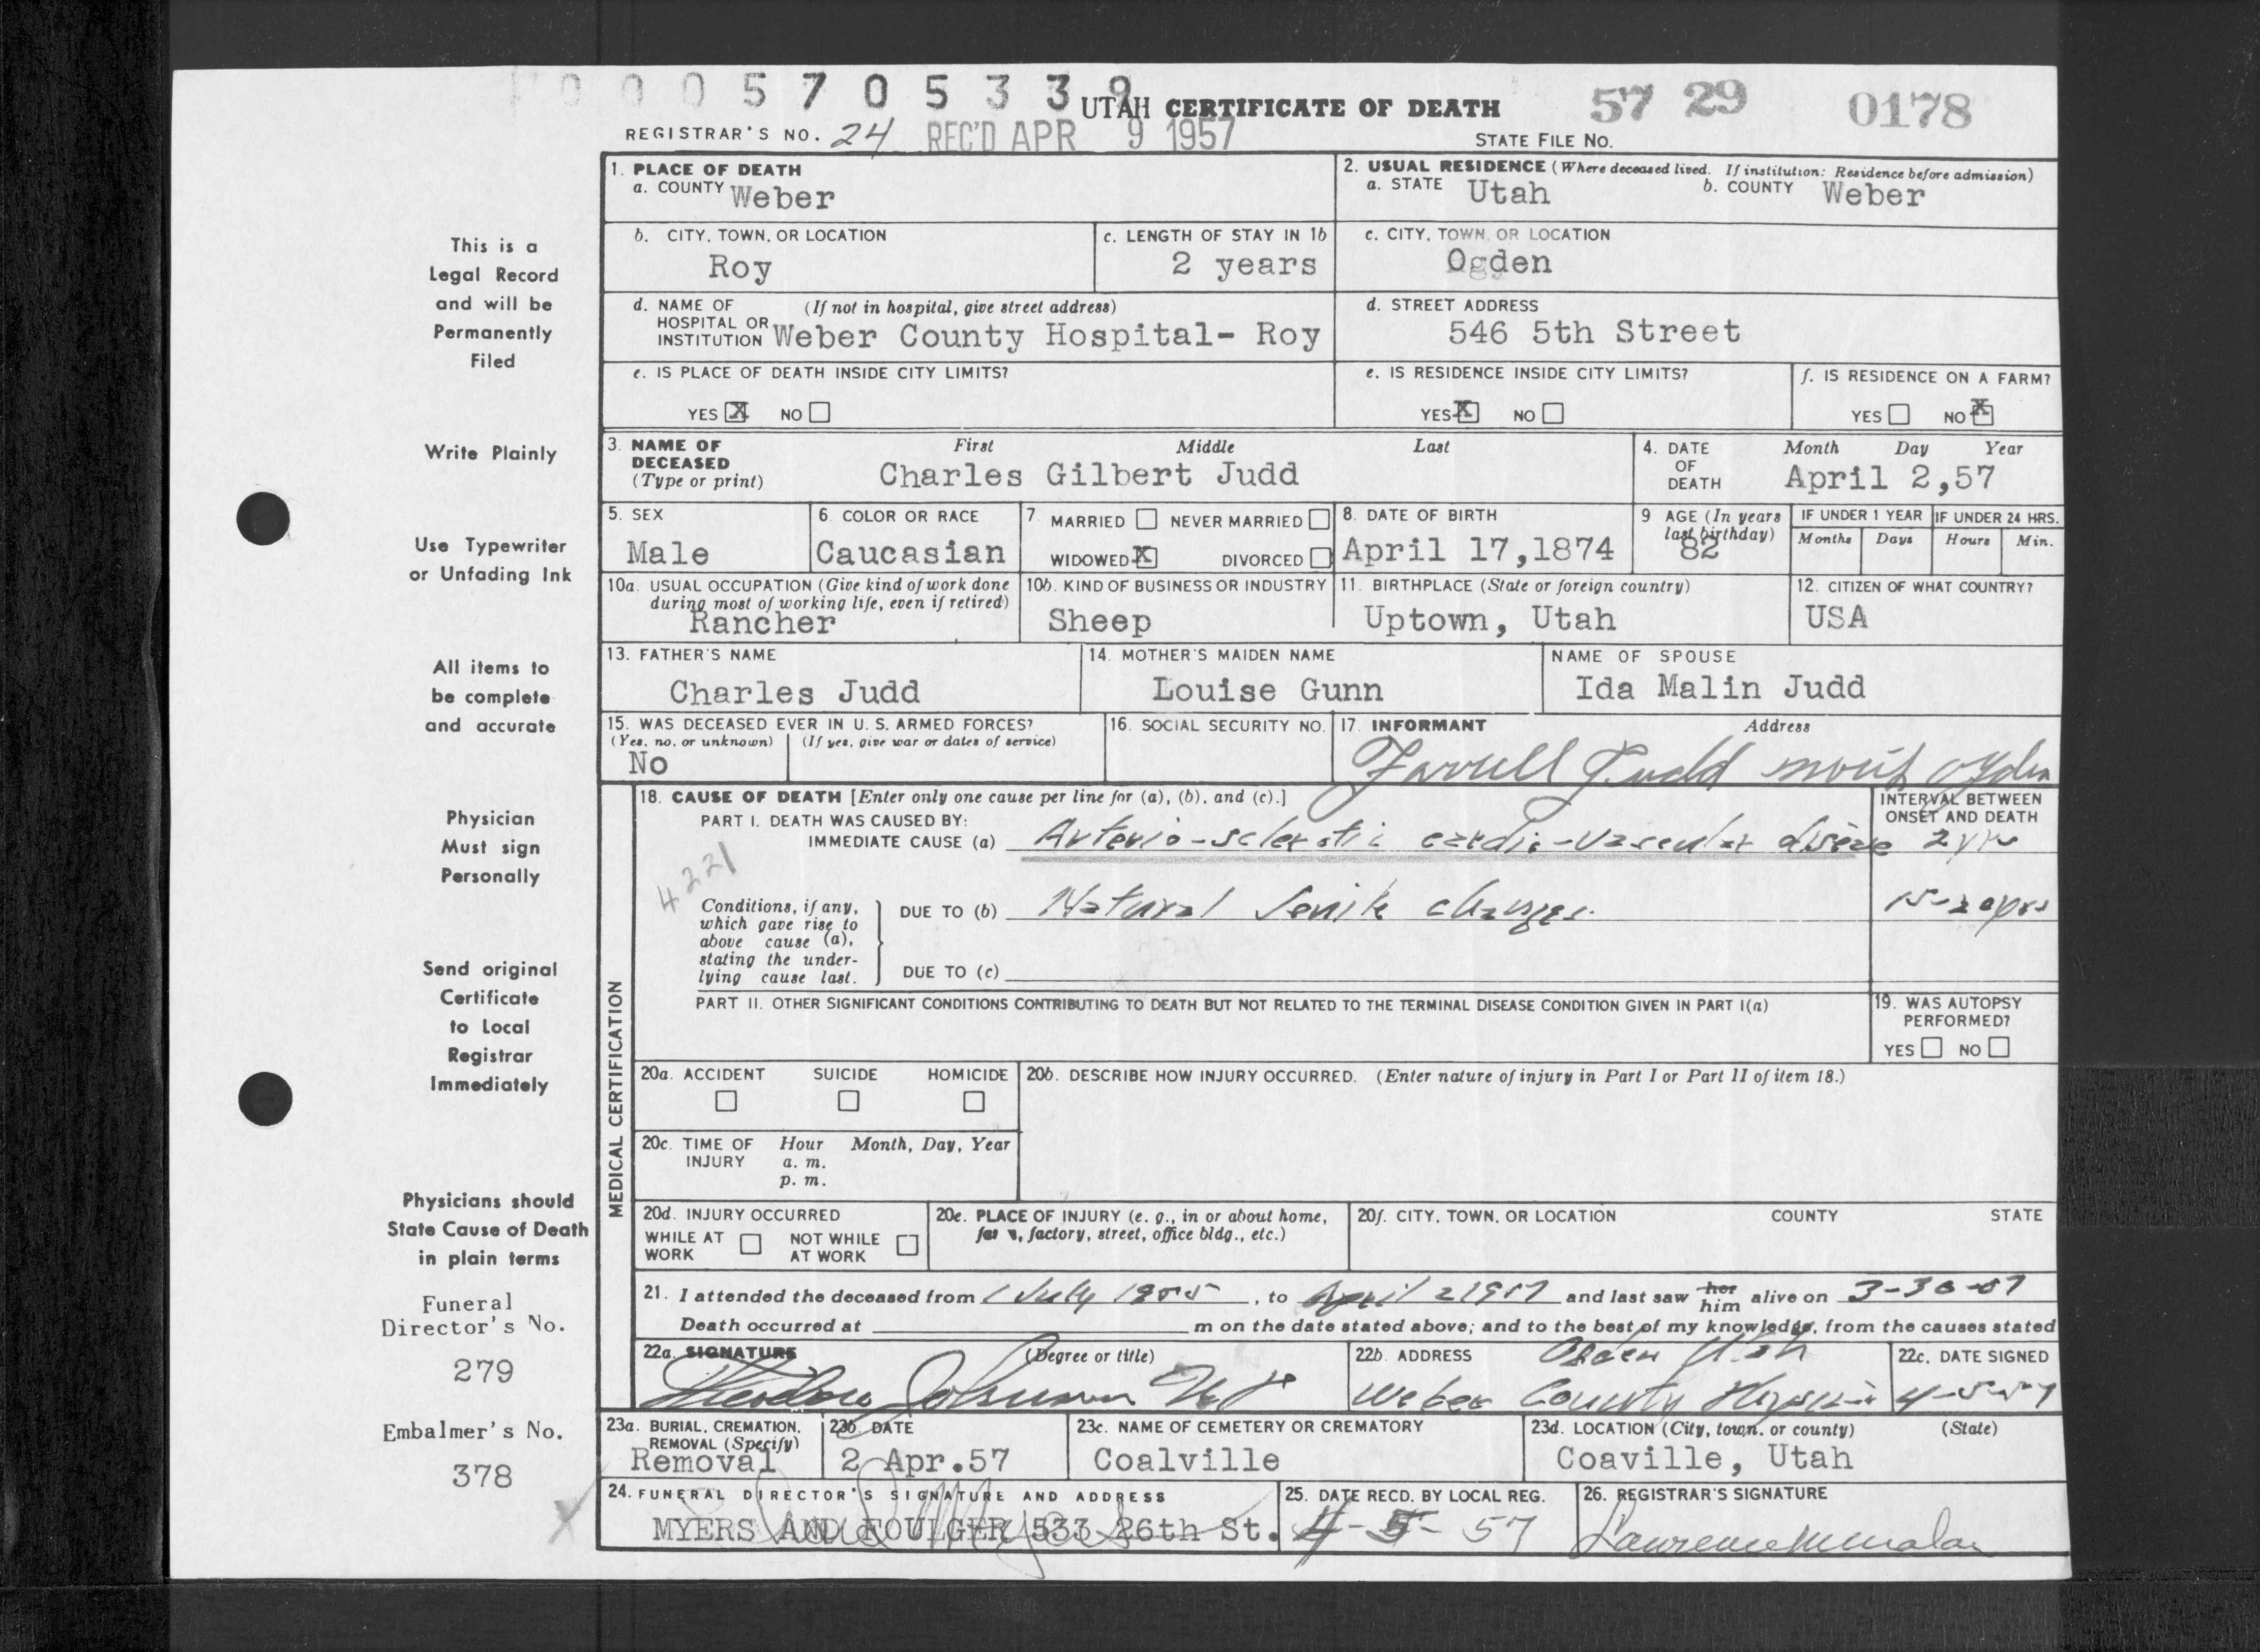 0 0 0 5 7 0 5 3 3 9
UTAH CERTIFICATE OF DEATH
57 29 0178
REGISTRAR'S NO. 24 REC'D APR 9 1957
STATE FILE NO.
1. PLACE OF DEATH
a. COUNTY Weber
2. USUAL RESIDENCE (Where deceased lived. If institution: Residence before admission)
a. STATE Utah b. COUNTY Weber
b. CITY, TOWN, OR LOCATION
Roy
c. LENGTH OF STAY IN 1b
2 years
c. CITY, TOWN, OR LOCATION
Ogden
d. NAME OF (If not in hospital, give street address)
HOSPITAL OR
INSTITUTION Weber County Hospital- Roy
d. STREET ADDRESS
546 5th Street
e. IS PLACE OF DEATH INSIDE CITY LIMITS?
YES X NO
e. IS RESIDENCE INSIDE CITY LIMITS?
YES X NO
f. IS RESIDENCE ON A FARM?
YES NO X
3. NAME OF DECEASED (Type or print)
First Middle Last
Charles Gilbert Judd
4. DATE OF DEATH
Month Day Year
April 2,57
5. SEX
Male
6. COLOR OR RACE
Caucasian
7 MARRIED NEVER MARRIED
WIDOWED X DIVORCED
8. DATE OF BIRTH
April 17,1874
9 AGE (In years
last birthday)
82
IF UNDER 1 YEAR
Months Days
IF UNDER 24 HRS.
Hours Min.
10a. USUAL OCCUPATION (Give kind of work done
during most of working life, even if retired)
Rancher
10b. KIND OF BUSINESS OR INDUSTRY
Sheep
11. BIRTHPLACE (State or foreign country)
Uptown, Utah
12. CITIZEN OF WHAT COUNTRY?
USA
13. FATHER'S NAME
Charles Judd
14. MOTHER'S MAIDEN NAME
Louise Gunn
NAME OF SPOUSE
Ida Malin Judd
15. WAS DECEASED EVER IN U. S. ARMED FORCES?
(Yes, no, or unknown) (If yes, give war or dates of service)
No
16. SOCIAL SECURITY NO.
17. INFORMANT Address
Farrell Judd north ogden
MEDICAL CERTIFICATION
18. CAUSE OF DEATH [Enter only one cause per line for (a), (b), and (c).]
INTERVAL BETWEEN
ONSET AND DEATH
PART I. DEATH WAS CAUSED BY:
IMMEDIATE CAUSE (a) Arterio-sclerotic cardio-vascular disease 2 yrs
4221
Conditions, if any,
which gave rise to
above cause (a),
stating the under-
lying cause last.
DUE TO (b) Natural Senile changes. 15-20 yrs
DUE TO (c)
PART II. OTHER SIGNIFICANT CONDITIONS CONTRIBUTING TO DEATH BUT NOT RELATED TO THE TERMINAL DISEASE CONDITION GIVEN IN PART I(a)
19. WAS AUTOPSY
PERFORMED?
YES NO
20a. ACCIDENT SUICIDE HOMICIDE
20b. DESCRIBE HOW INJURY OCCURRED. (Enter nature of injury in Part I or Part II of item 18.)
20c. TIME OF INJURY
Hour Month, Day, Year
a. m.
p. m.
20d. INJURY OCCURRED
WHILE AT WORK NOT WHILE AT WORK
20e. PLACE OF INJURY (e. g., in or about home,
factory, street, office bldg., etc.)
20f. CITY, TOWN, OR LOCATION COUNTY STATE
21. I attended the deceased from 1 July 1955, to April 2 1957 and last saw her him alive on 3-30-57
Death occurred at m on the date stated above; and to the best of my knowledge, from the causes stated
22a. SIGNATURE (Degree or title)
Theodore Johnson M D
22b. ADDRESS Ogden Utah
Weber County Hospital
22c. DATE SIGNED
4-5-57
23a. BURIAL, CREMATION,
REMOVAL (Specify)
Removal
23b. DATE
2 Apr.57
23c. NAME OF CEMETERY OR CREMATORY
Coalville
23d. LOCATION (City, town, or county) (State)
Coaville, Utah
24. FUNERAL DIRECTOR'S SIGNATURE AND ADDRESS
MYERS AND FOULGER 533 26th St.
25. DATE RECD. BY LOCAL REG.
4-5-57
26. REGISTRAR'S SIGNATURE
This is a
Legal Record
and will be
Permanently
Filed
Write Plainly
Use Typewriter
or Unfading Ink
All items to
be complete
and accurate
Physician
Must sign
Personally
Send original
Certificate
to Local
Registrar
Immediately
Physicians should
State Cause of Death
in plain terms
Funeral
Director's No.
279
Embalmer's No.
378